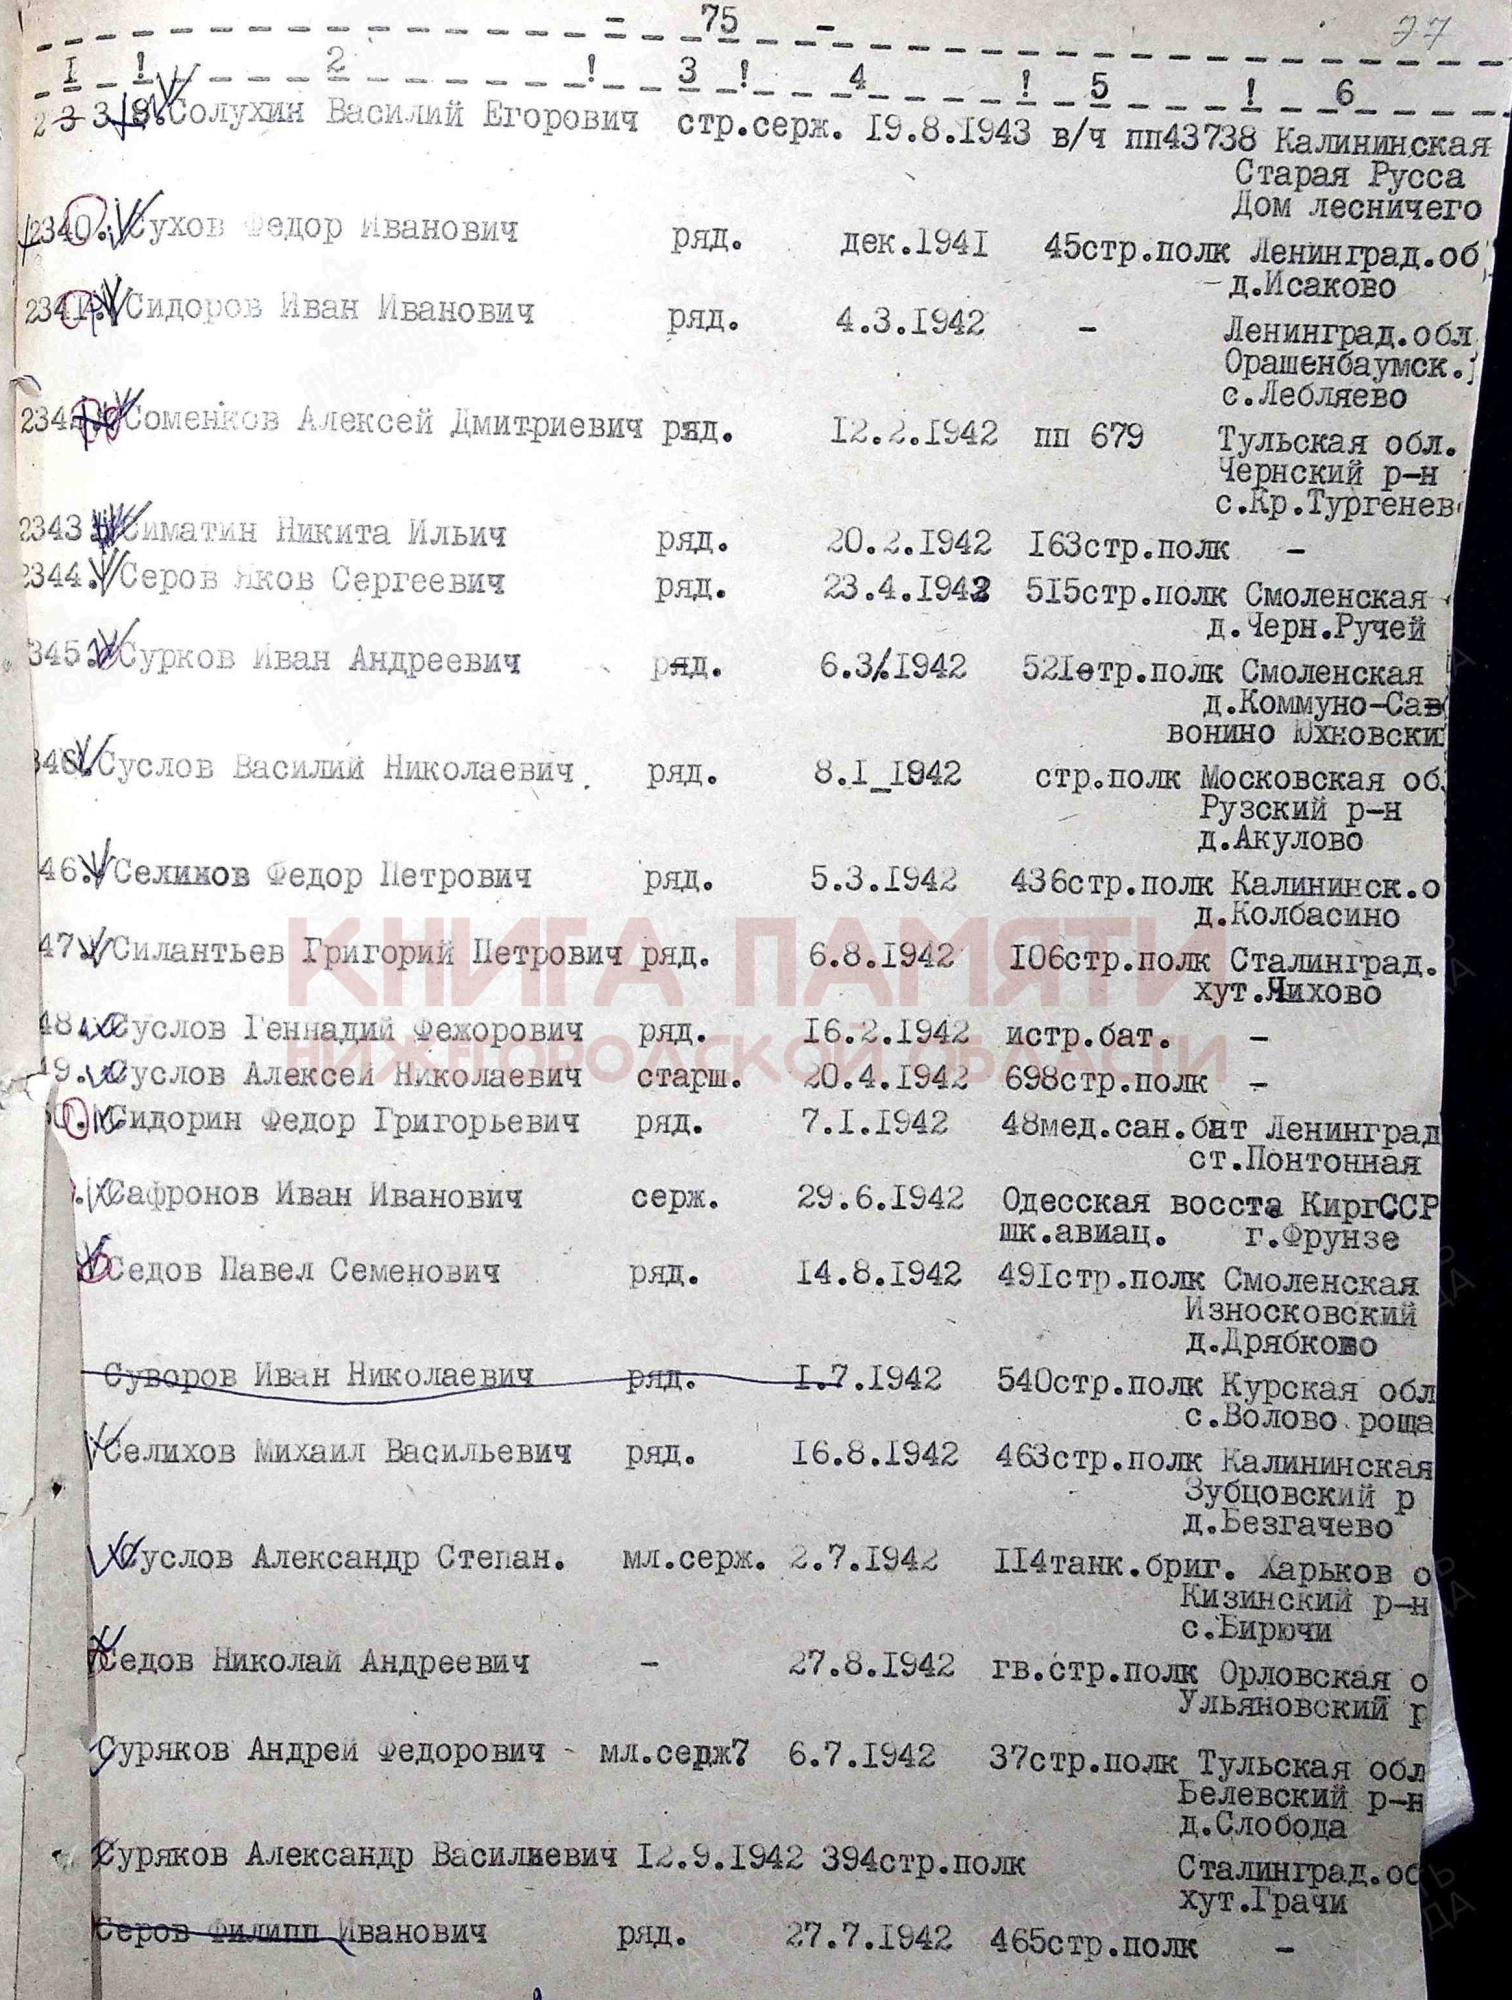 - 75 -
27
I ! 2 ! 3 ! 4 ! 5 ! 6
Солухин Василий Егорович стр.серж. 19.8.1943 в/ч пп43738 Калининская
Старая Русса
Дом лесничего
2340. Сухов Федор Иванович ряд. дек.1941 45стр.полк Ленинград.об
д.Исаково
2341. Сидоров Иван Иванович ряд. 4.3.1942 - Ленинград.обл
Орашенбаумск.
с.Лебляево
2342 Соменков Алексей Дмитриевич ряд. 12.2.1942 пп 679 Тульская обл.
Чернский р-н
с.Кр.Тургенев
2343 Симатин Никита Ильич ряд. 20.2.1942 163стр.полк -
2344. Серов Яков Сергеевич ряд. 23.4.1942 515стр.полк Смоленская
д.Черн.Ручей
345. Сурков Иван Андреевич ряд. 6.3.1942 521стр.полк Смоленская
д.Коммуно-Сав
вонино Юхновски
346. Суслов Василий Николаевич. ряд. 8.I_1942 стр.полк Московская об
Рузский р-н
д.Акулово
46. Селиков Федор Петрович ряд. 5.3.1942 436стр.полк Калининск.о
д.Колбасино
47. Силантьев Григорий Петрович ряд. 6.8.1942 106стр.полк Сталинград.
хут.Чихово
КНИГА ПАМЯТИ
48. Суслов Геннадий Фежорович ряд. 16.2.1942 истр.бат. -
НИЖЕГОРОДСКОЙ ОБЛАСТИ
49. Суслов Алексей Николаевич старш. 20.4.1942 698стр.полк -
Сидорин Федор Григорьевич ряд. 7.I.1942 48мед.сан.бат Ленинград
ст.Понтонная
Сафронов Иван Иванович серж. 29.6.1942 Одесская восста КиргССР
шк.авиац. г.Фрунзе
Седов Павел Семенович ряд. 14.8.1942 491стр.полк Смоленская
Износковский
д.Дрябково
Суворов Иван Николаевич ряд. I.7.1942 540стр.полк Курская обл
с.Волово роща
Селихов Михаил Васильевич ряд. 16.8.1942 463стр.полк Калининская
Зубцовский р
д.Безгачево
Суслов Александр Степан. мл.серж. 2.7.1942 114танк.бриг. Харьков о
Кизинский р-н
с.Бирючи
Седов Николай Андреевич - 27.8.1942 гв.стр.полк Орловская о
Ульяновский р
Суряков Андрей Федорович - мл.серж7 6.7.1942 37стр.полк Тульская обл
Белевский р-н
д.Слобода
Суряков Александр Василиевич 12.9.1942 394стр.полк Сталинград.об
хут.Грачи
Серов Филипп Иванович ряд. 27.7.1942 465стр.полк -